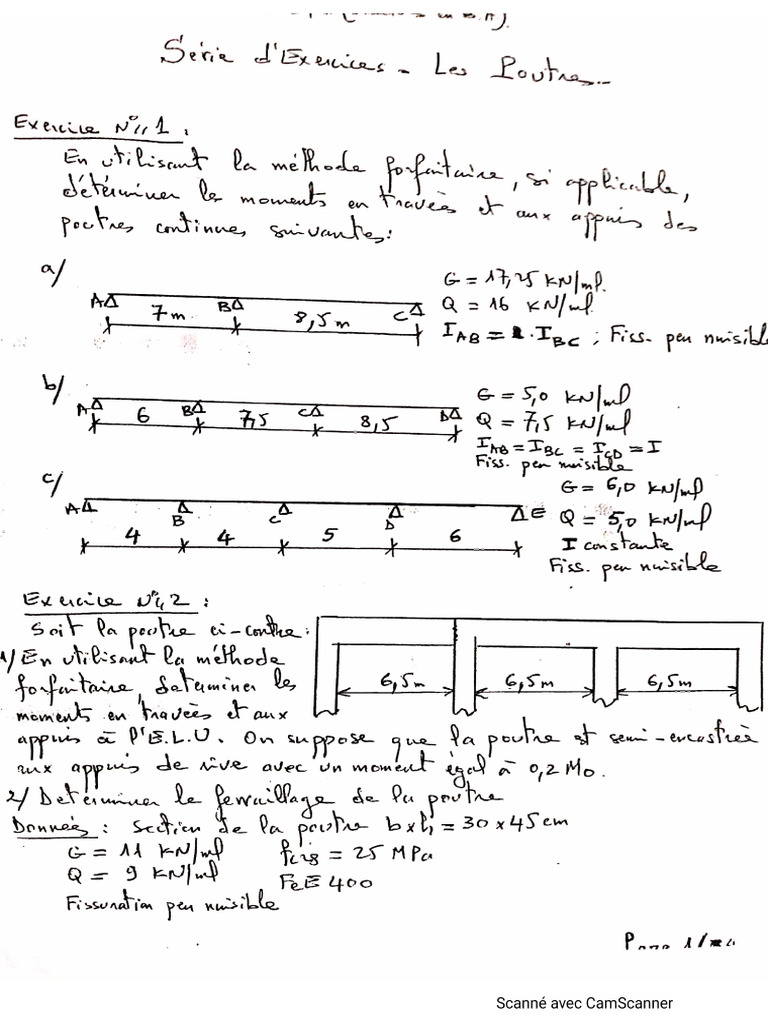 Série d'Exercices - Les Poutres -
Exercice N° 1 :
En utilisant la méthode forfaitaire, si applicable,
détérminer les moments en travées et aux appuis des
poutres continues suivantes :
a/
A B C
7m 8,5m
G = 17,25 KN/ml.
Q = 16 KN/ml.
I_AB = . I_BC ; Fiss. peu nuisible
b/
A B C D
6 7,5 8,5
G = 5,0 KN/ml
Q = 7,5 KN/ml
I_AB = I_BC = I_CD = I
Fiss. peu nuisible
c/
A B C D E
4 4 5 6
G = 6,0 KN/ml
Q = 5,0 KN/ml
I constante
Fiss. peu nuisible
Exercice N° 2 :
Soit la poutre ci-contre :
1/ En utilisant la méthode
forfaitaire, determiner les
moments en travées et aux
appuis à l'E.L.U. On suppose que la poutre est semi-encastrée
aux appuis de rive avec un moment égal à 0,2 Mo.
6,5m 6,5m 6,5m
2/ Determiner le ferraillage de la poutre
Données : section de la poutre b x h = 30 x 45 cm
G = 11 KN/ml fc28 = 25 MPa
Q = 9 KN/ml FeE 400
Fissuration peu nuisible
Scanné avec CamScanner